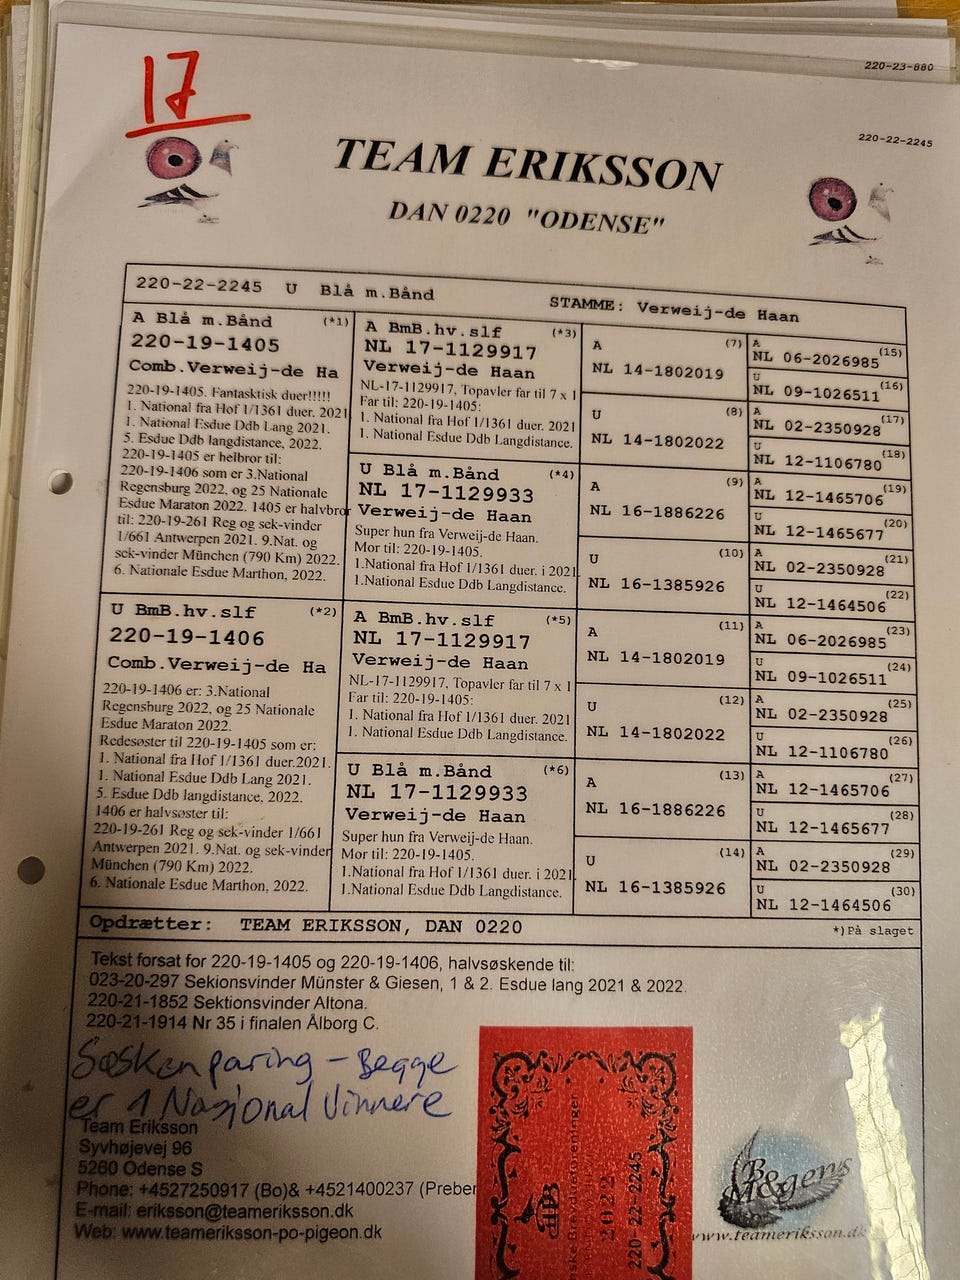 17
220-23-880
220-22-2245
TEAM ERIKSSON
DAN 0220 "ODENSE"
220-22-2245 U Blå m.Bånd STAMME: Verweij-de Haan
A Blå m.Bånd (*1)
220-19-1405
Comb.Verweij-de Ha
220-19-1405. Fantasktisk duer!!!!!
1. National fra Hof 1/1361 duer. 2021
1. National Esdue Ddb Lang 2021.
5. Esdue Ddb langdistance, 2022.
220-19-1405 er helbror til:
220-19-1406 som er 3.National
Regensburg 2022, og 25 Nationale
Esdue Maraton 2022. 1405 er halvbror
til: 220-19-261 Reg og sek-vinder
1/661 Antwerpen 2021. 9.Nat. og
sek-vinder München (790 Km) 2022.
6. Nationale Esdue Marthon, 2022.
U BmB.hv.slf (*2)
220-19-1406
Comb.Verweij-de Ha
220-19-1406 er: 3.National
Regensburg 2022, og 25 Nationale
Esdue Maraton 2022.
Redesøster til 220-19-1405 som er:
1. National fra Hof 1/1361 duer.2021.
1. National Esdue Ddb Lang 2021.
5. Esdue Ddb langdistance, 2022.
1406 er halvsøster til:
220-19-261 Reg og sek-vinder 1/661
Antwerpen 2021. 9.Nat. og sek-vinder
München (790 Km) 2022.
6. Nationale Esdue Marthon, 2022.
A BmB.hv.slf (*3)
NL 17-1129917
Verweij-de Haan
NL-17-1129917, Topavler far til 7 x 1
Far til: 220-19-1405:
1. National fra Hof 1/1361 duer. 2021
1. National Esdue Ddb Langdistance.
U Blå m.Bånd (*4)
NL 17-1129933
Verweij-de Haan
Super hun fra Verweij-de Haan.
Mor til: 220-19-1405.
1.National fra Hof 1/1361 duer. i 2021
1.National Esdue Ddb Langdistance.
A BmB.hv.slf (*5)
NL 17-1129917
Verweij-de Haan
NL-17-1129917, Topavler far til 7 x 1
Far til: 220-19-1405:
1. National fra Hof 1/1361 duer. 2021
1. National Esdue Ddb Langdistance.
U Blå m.Bånd (*6)
NL 17-1129933
Verweij-de Haan
Super hun fra Verweij-de Haan.
Mor til: 220-19-1405.
1.National fra Hof 1/1361 duer. i 2021
1.National Esdue Ddb Langdistance.
A (7)
NL 14-1802019
U (8)
NL 14-1802022
A (9)
NL 16-1886226
U (10)
NL 16-1385926
A (11)
NL 14-1802019
U (12)
NL 14-1802022
A (13)
NL 16-1886226
U (14)
NL 16-1385926
A (15)
NL 06-2026985
U (16)
NL 09-1026511
A (17)
NL 02-2350928
U (18)
NL 12-1106780
A (19)
NL 12-1465706
U (20)
NL 12-1465677
A (21)
NL 02-2350928
U (22)
NL 12-1464506
A (23)
NL 06-2026985
U (24)
NL 09-1026511
A (25)
NL 02-2350928
U (26)
NL 12-1106780
A (27)
NL 12-1465706
U (28)
NL 12-1465677
A (29)
NL 02-2350928
U (30)
NL 12-1464506
Opdrætter: TEAM ERIKSSON, DAN 0220 *)På slaget
Tekst forsat for 220-19-1405 og 220-19-1406, halvsøskende til:
023-20-297 Sekionsvinder Münster & Giesen, 1 & 2. Esdue lang 2021 & 2022.
220-21-1852 Sektionsvinder Altona.
220-21-1914 Nr 35 i finalen Ålborg C.
Søskenparing - Begge
er 1 Nasjonal Vinnere
Team Eriksson
Syvhøjevej 96
5260 Odense S
Phone: +4527250917 (Bo)& +4521400237 (Preben
E-mail: eriksson@teameriksson.dk
Web: www.teameriksson-po-pigeon.dk
ske Brevdueforeninger
2022
220-22-2245
B&gens
www.teameriksson.dk